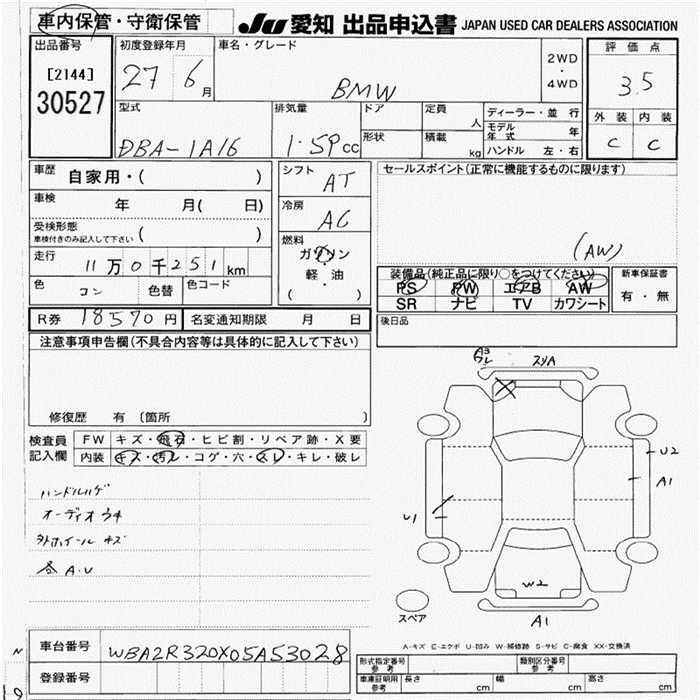 車内保管・守衛保管 JU 愛知 出品申込書 JAPAN USED CAR DEALERS ASSOCIATION
出品番号 初度登録年月 車名・グレード 2WD・4WD 評価点
[2144] 27 6月 BMW 3.5
30527
型式 排気量 ドア 定員 人 ディーラー・並行 外装 内装
DBA-1A16 1.59cc 形状 積載 kg モデル年式 年 C C
ハンドル 左・右
車歴 自家用・( ) シフト AT セールスポイント(正常に機能するものに限ります)
車検 年 月( 日) 冷房 AC
受検形態 車検付きのみ記入して下さい ( ) 燃料 ガソリン・軽・油 ( ・ ) (AW)
走行 11万0千251km 装備品(純正品に限り○をつけてください) 新車保証書
色 コン 色替 色コード PS PW エアB AW 有・無
SR ナビ TV カワシート
R券 18570円 名変通知期限 月 日 後日品
注意事項申告欄(不具合内容等は具体的に記入して下さい)
修復歴 有 〔箇所 〕
検査員記入欄 FW キズ・飛石・ヒビ割・リペア跡・X要
内装 キズ・汚レ・コゲ・穴・スレ・キレ・破レ
ハンドルハゲ
オーディオウキ
外ホイールキズ
各A.U
A3
スリA
X
U2
A1
U1
W2
A1
スペア
A-キズ E-エクボ U-凹み W-補修跡 S-サビ C-腐食 XX-交換済
車台番号 WBA2R320X05A53028
登録番号
形式指定番号 参考 類別区分番号 参考
車庫証明用 参考 長さ cm 幅 cm 高さ cm